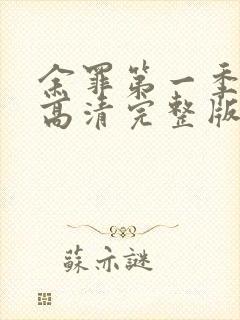 余罪第一季
高清完整版
蘇亦謎